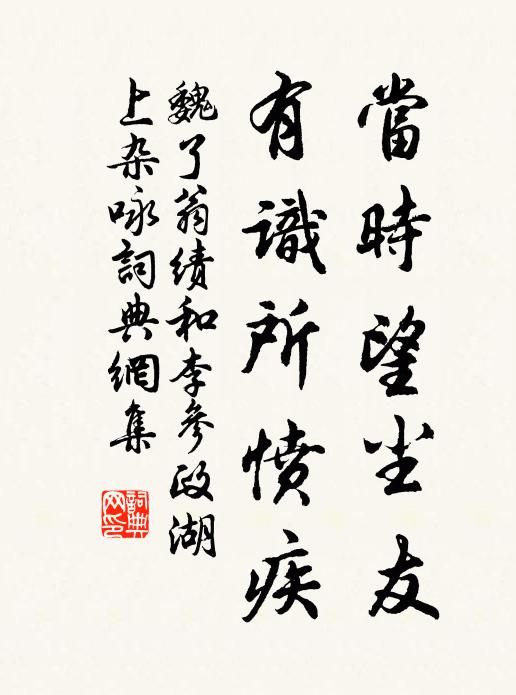 當時望尘友
有識所憤疾
魏了翁績和李參政湖
上杂咏詞典網集
詞典网印